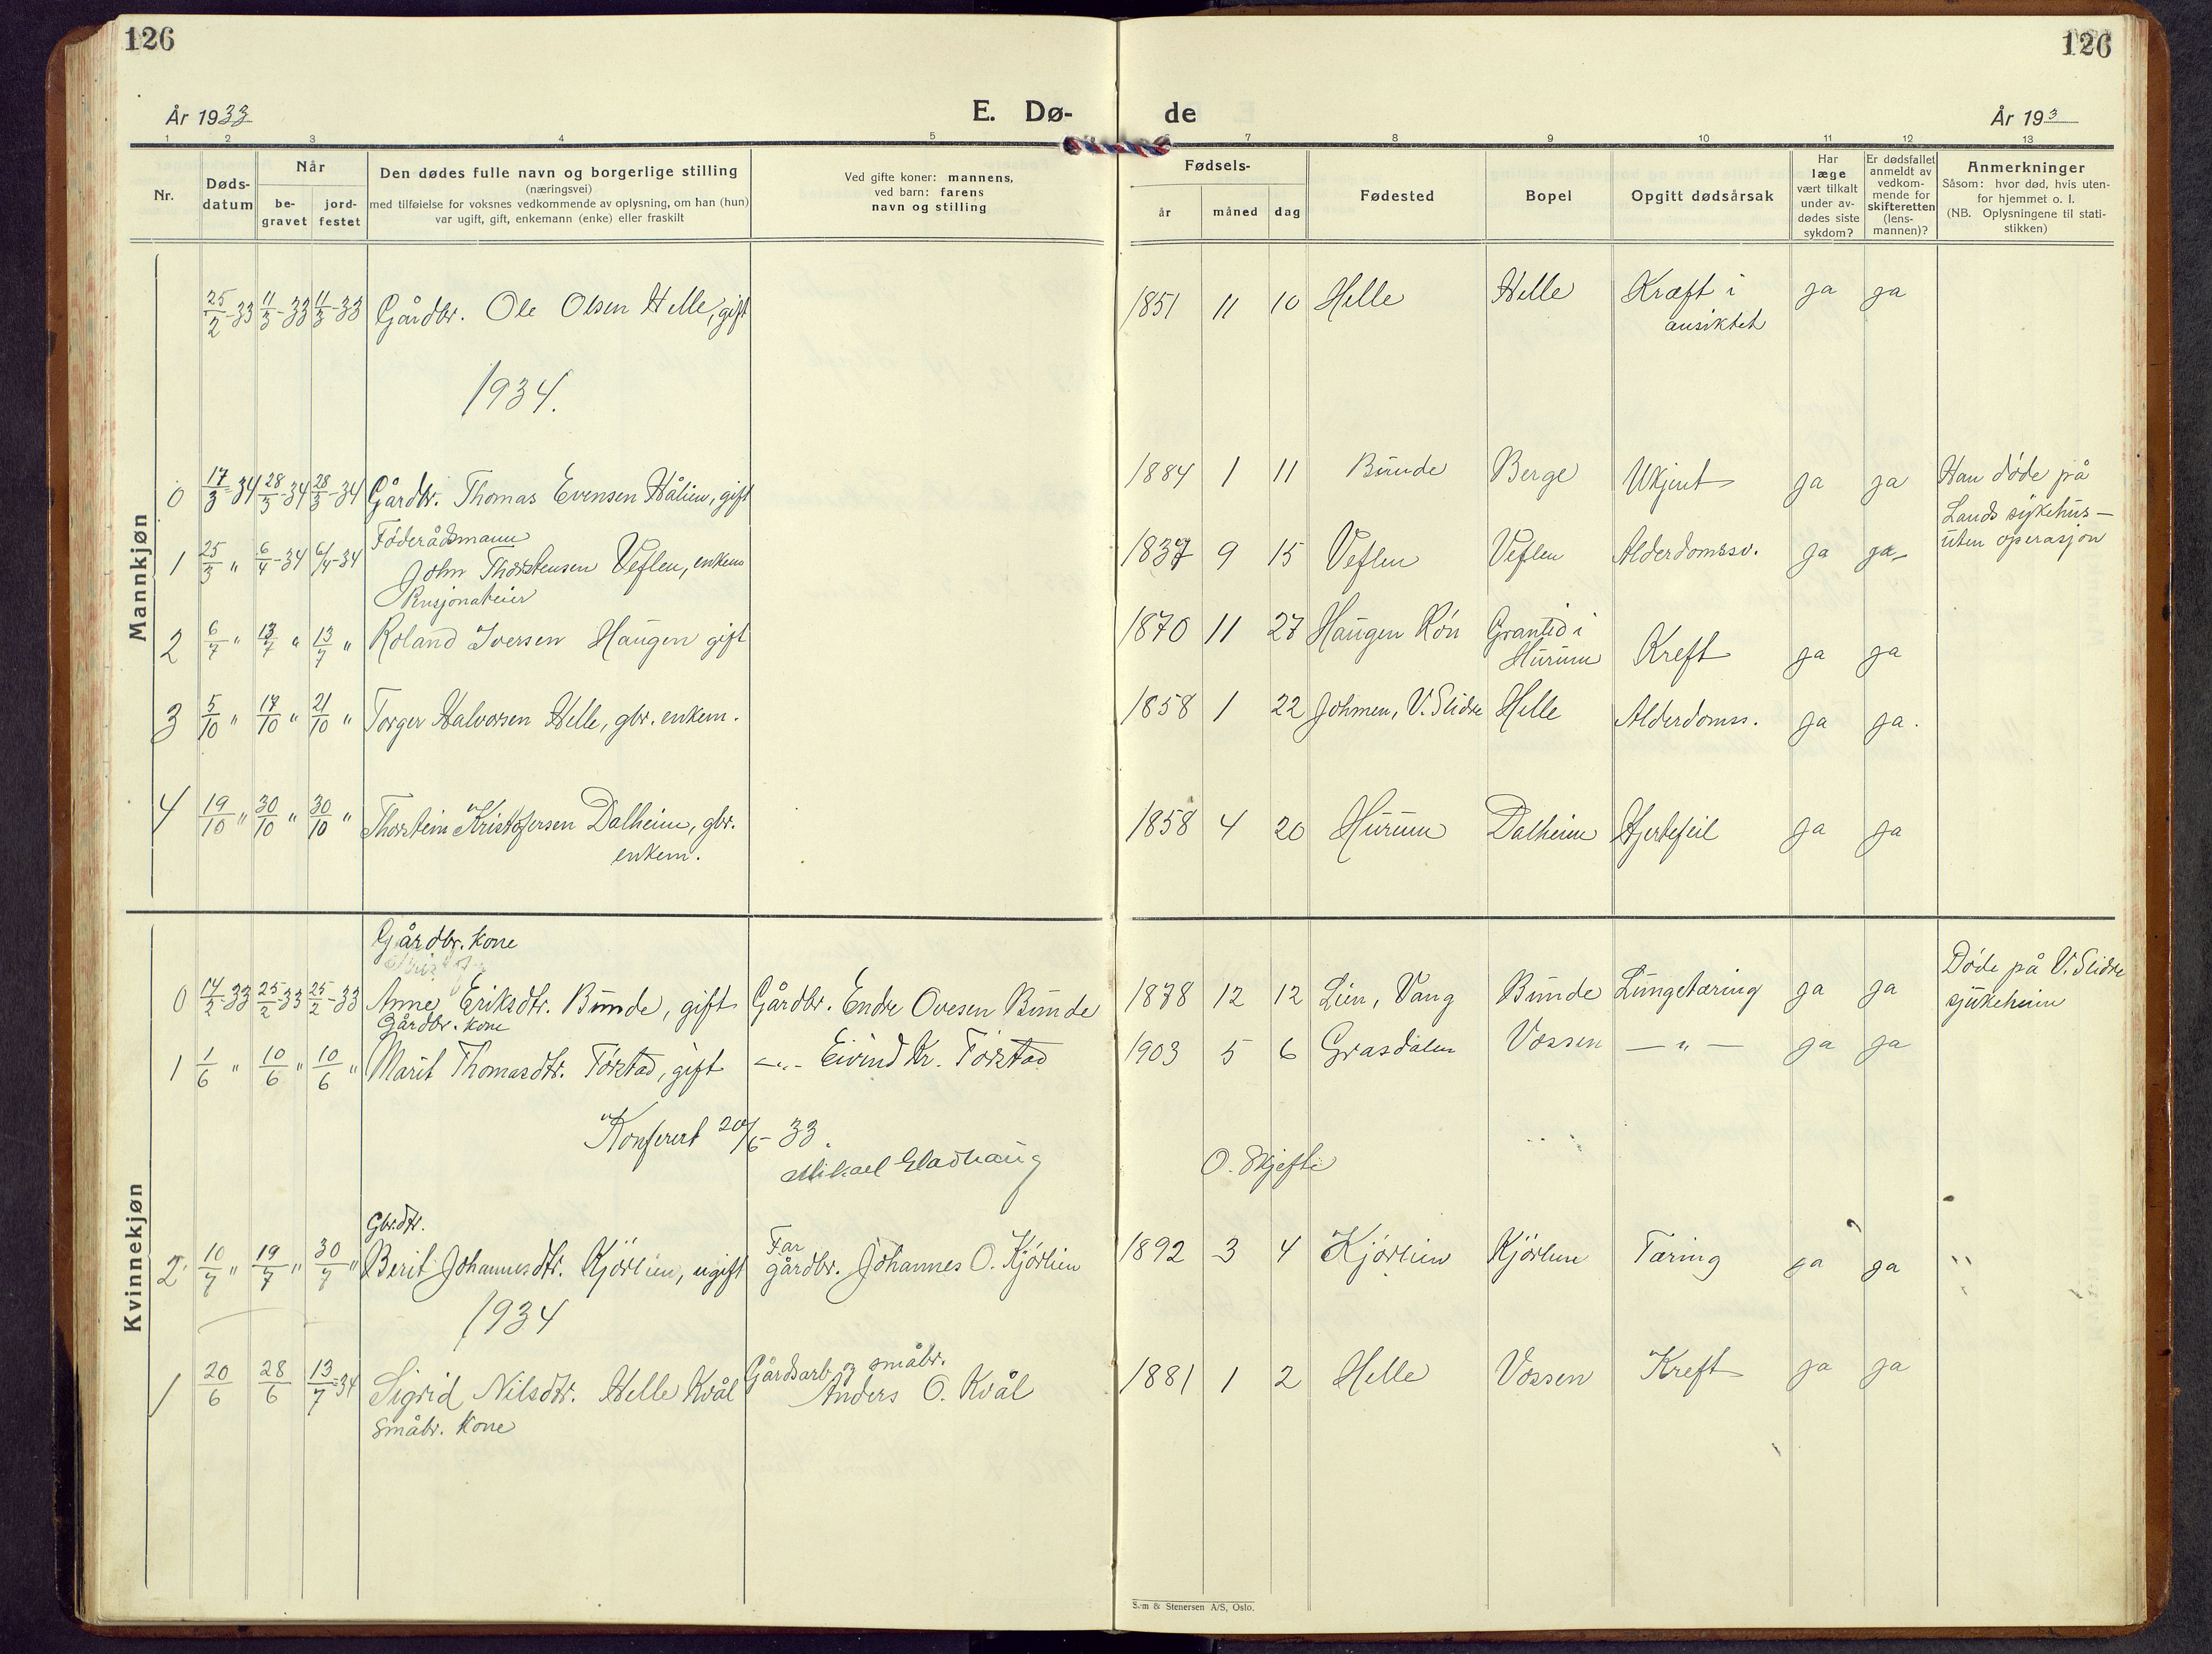 126
126
År 1933
E. Dø-
de
År 193
1 2 3 4 5 6 7 8 9 10 11 12 13
Nr.
Døds-
datum
Når
be-
gravet
jord-
festet
Den dødes fulle navn og borgerlige stilling
(næringsvei)
med tilføielse for voksnes vedkommende av oplysning, om han (hun)
var ugift, gift, enkemann (enke) eller fraskilt
Ved gifte koner: mannens,
ved barn: farens
navn og stilling
Fødsels-
år
måned
dag
Fødested
Bopel
Opgitt dødsårsak
Har
læge
vært tilkalt
under av-
dødes siste
sykdom?
Er dødsfallet
anmeldt av
vedkom-
mende for
skifteretten
(lens-
mannen)?
Anmerkninger
Såsom: hvor død, hvis uten-
for hjemmet o. l.
(NB. Oplysningene til stati-
stikken)
Mannkjøn
25/2-33 11/3-33 11/3-33 Gårdbr. Ole Olsen Helle, gift 1851 11 10 Helle Helle Kræft i
ansiktet ja ja
1934.
0 17/3-34 28/3-34 28/3-34 Gårdbr. Thomas Evensen Hålien, gift 1884 1 11 Bunde Berge Ukjent ja ja Han døde på
Lands sykehus –
uten operasjon
Føderådsmann
1 25/3 " 6/4-34 6/4-34 John Thorstensen Veflen, enkem 1837 9 15 Veflen Veflen Alderdomssv. ja ja
Pensjonateier
2 6/7 " 13/7 " 13/7 " Roland Iversen Haugen gift 1870 11 27 Haugen Røn Grantid i
Hurum Kreft ja ja
3 5/10 " 17/10 " 21/10 " Torger Halvorsen Helle, gbr. enkem. 1858 1 22 Johmen, V. Slidre Helle Alderdomss. ja ja.
4 19/10 " 30/10 " 30/10 " Thorstein Kristofersen Dalheim, gbr.
enkem. 1858 4 20 Hurum Dalheim Hjertefeil ja ja
Kvinnekjøn
Gårdbr. kone
0 14/2-33 25/2-33 25/2-33 Anne Eriksdtr. Bunde, gift Gårdbr. Endre Ovesen Bunde 1878 12 12 Lien, Vang Bunde Lungetæring ja ja Døde på V. Slidre
sjukeheim
Gårdbr. kone
1 1/6 " 10/6 " 10/6 " Marit Thomasdtr. Tørstad, gift –"– Eivind Kr. Tørstad 1903 5 6 Grasdalen Vossen – " – ja ja
Konferert 20/6-33.
Mikael Gladhaug
O. Skjefte
Gbr.dtr.
2 10/7 " 19/7 " 30/7 " Berit Johannesdtr. Kjørlien, ugift Far
gårdbr. Johannes O. Kjørlien 1892 3 4 Kjørlien Kjørlien Tæring ja ja
1934
1 20/6 28/6 13/7-34 Sigrid Nilsdtr. Helle Kvål Gårdsarb og småbr.
Anders O. Kvål 1881 1 2 Helle Vossen Kreft ja ja
småbr. kone
Sem & Stenersen A/S, Oslo.